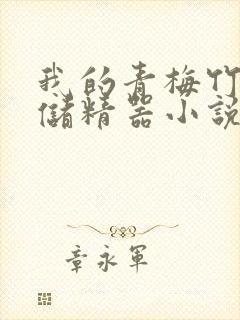 我的青梅竹
儲精器小說
章永軍